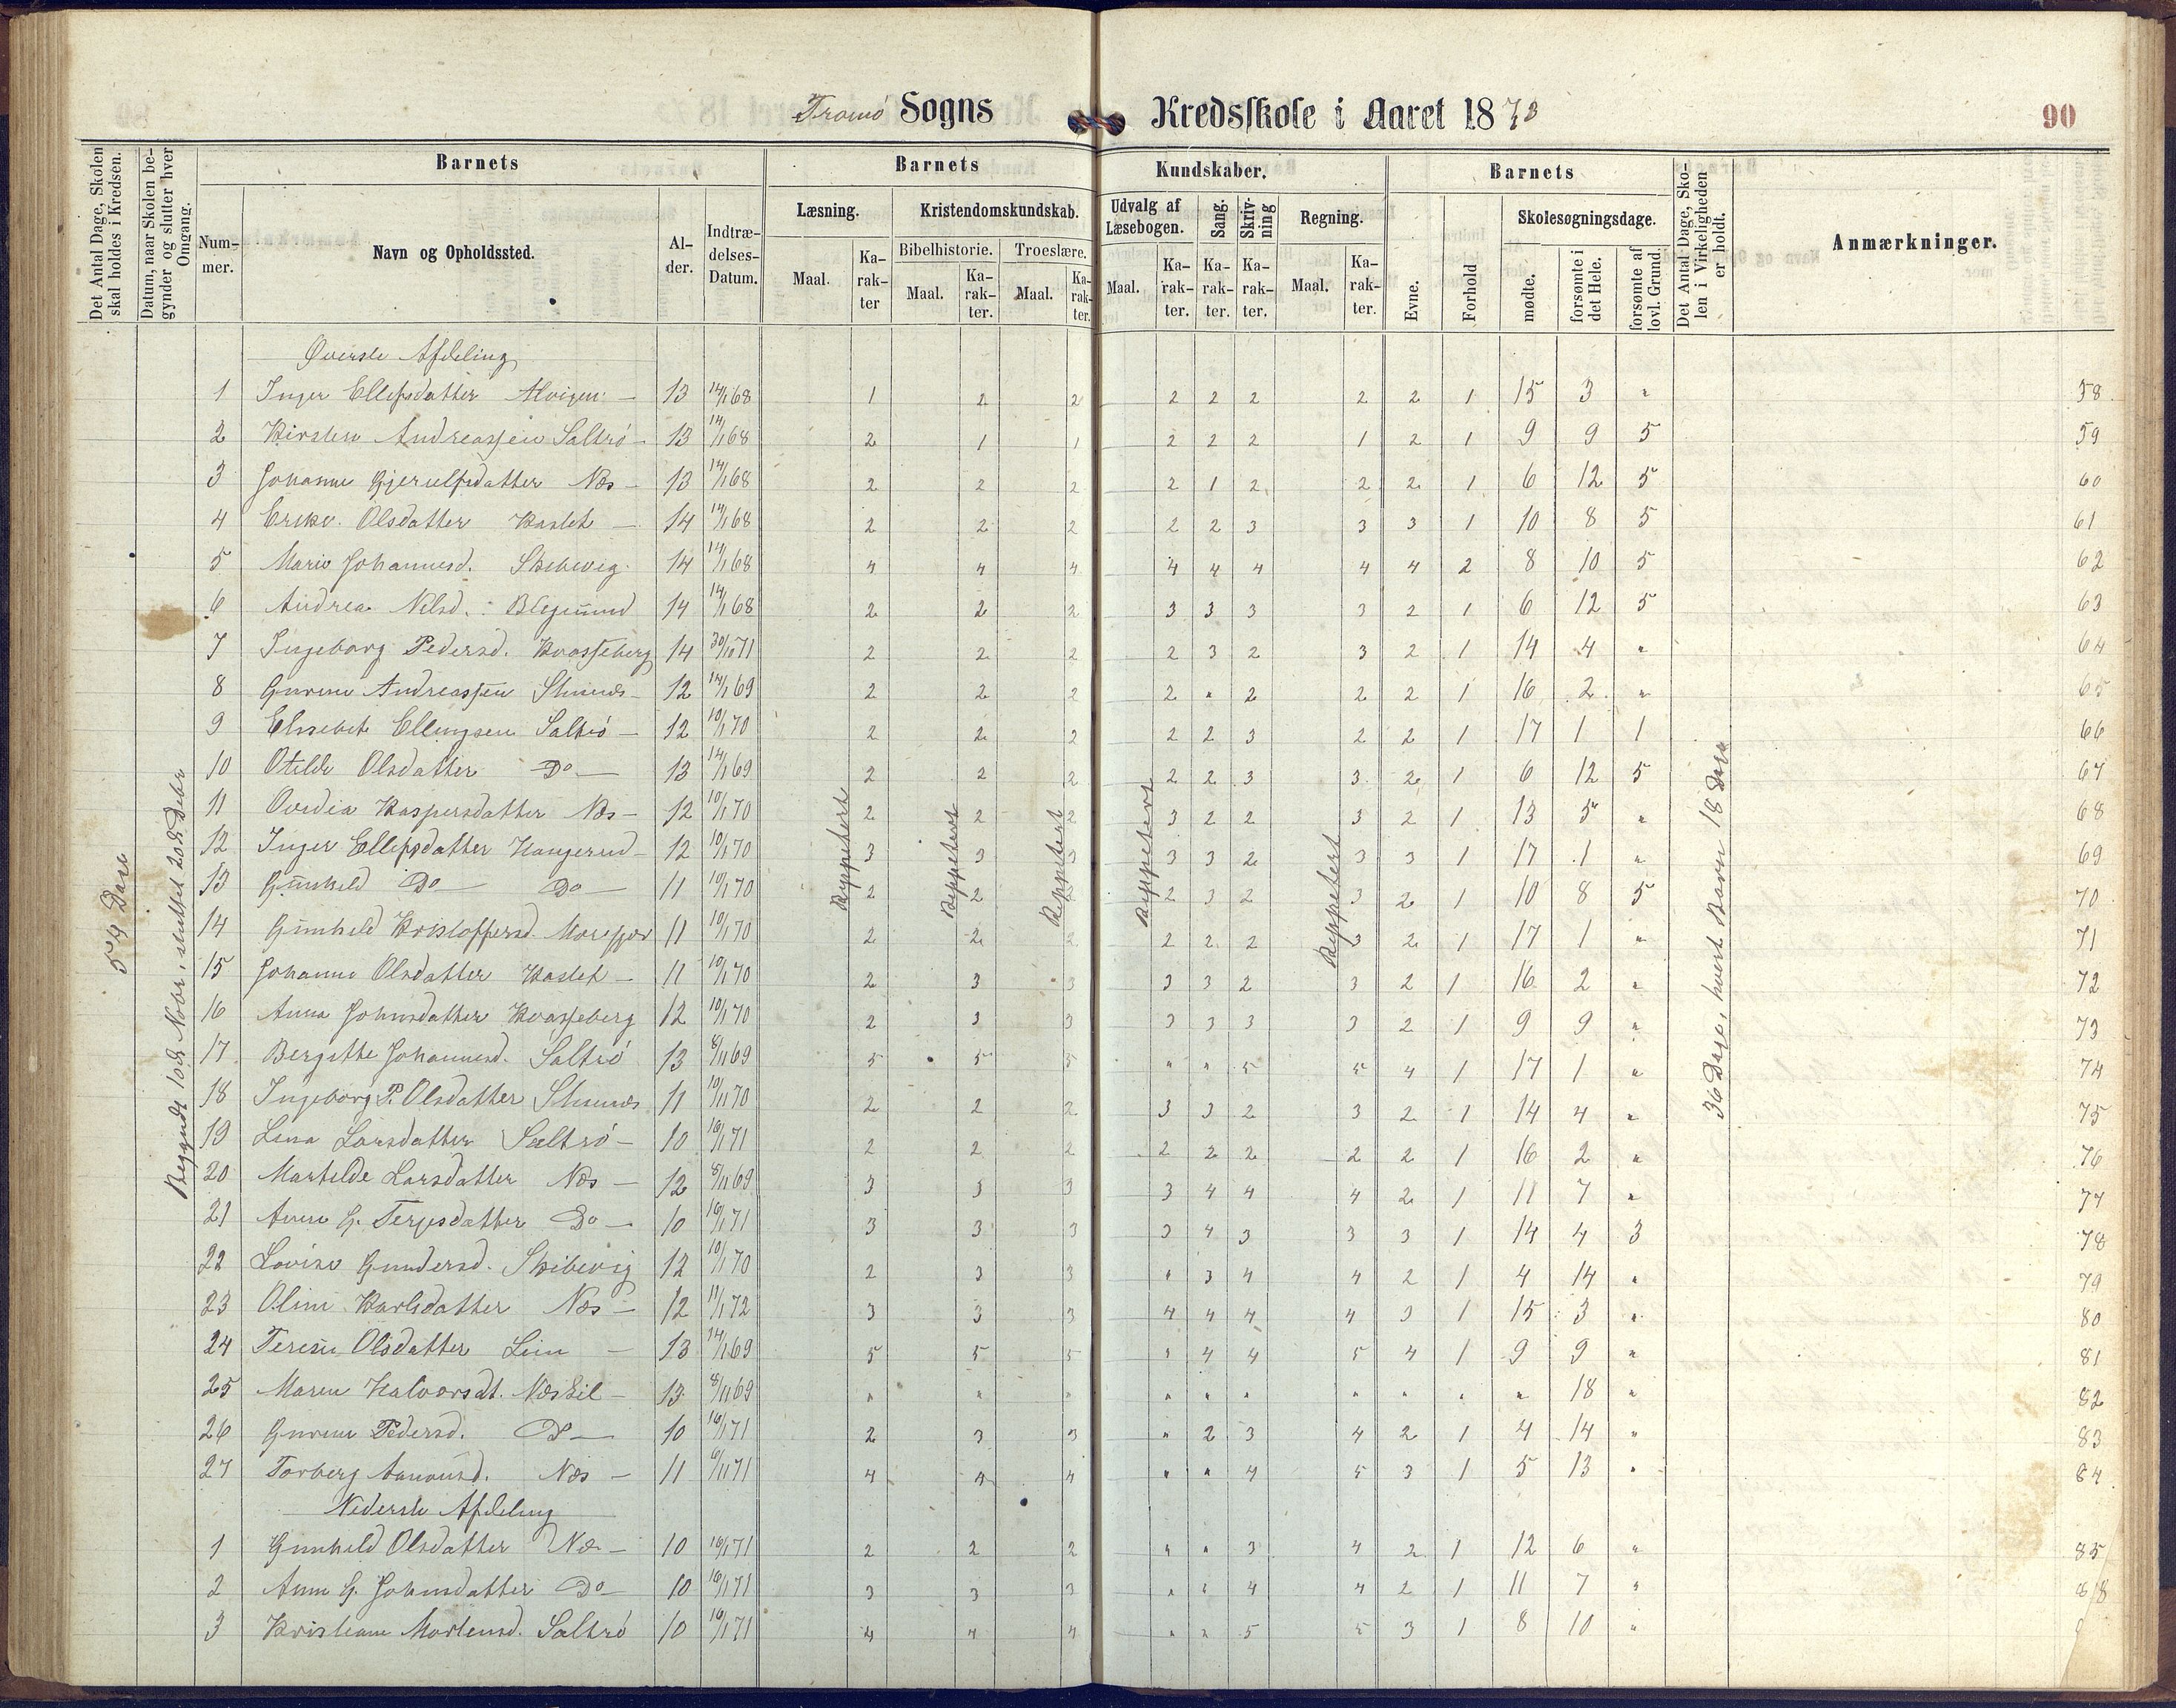 Tromø Sogns Kredsskole i Aaret 1873
90
Det Antal Dage, Skolen skal holdes i Kredsen.
Datum, naar Skolen begynder og slutter hver Omgang.
Barnets
Nummer.
Navn og Opholdssted.
Alder.
Indtrædelses-Datum.
Barnets Kundskaber.
Læsning.
Maal.
Karakter
Kristendomskundskab.
Bibelhistorie.
Maal.
Karakter.
Troeslære.
Maal.
Karakter.
Udvalg af Læsebogen.
Maal.
Karakter.
Sang.
Karakter.
Skrivning
Karakter.
Regning.
Maal.
Karakter.
Barnets
Evne.
Forhold
Skolesøgningsdage.
mødte.
forsømte i det Hele.
forsømte af lovl. Grund.
Det Antal Dage, Skolen i Virkeligheden er holdt.
Anmærkninger.
54 Dage
Begyndt 10de Novbr, sluttet 20de Debr
Reppetert
Reppetert
Reppetert
Reppetert
Reppetert
36 Dage, hvert Barn 18 Dage
Øverste Afdeling
1 Inger Ellefsdatter Alvigen — 13 14/1 68 1 2 2 2 2 2 2 2 1 15 3 " 58
2 Kirsten Andreassen Saltrø — 13 14/1 68 2 1 1 2 2 2 1 2 1 9 9 5 59
3 Johanne Gjerulfsdatter Næs — 13 14/1 68 2 2 2 2 1 2 2 2 1 6 12 5 60
4 Erike Olsdatter Kaslet — 14 14/1 68 2 2 2 2 2 3 3 3 1 10 8 5 61
5 Marie Johannesd. Skibevig 14 14/1 68 4 4 4 4 4 4 4 4 2 8 10 5 62
6 Andrea Nilsd. Blegmund 14 14/1 68 2 2 2 3 3 3 3 2 1 6 12 5 63
7 Ingeborg Pedersd. Kvasseberg 14 30/10 71 2 2 2 2 3 2 3 2 1 14 4 " 64
8 Gurine Andreassen Stuenes 12 14/1 69 2 2 2 2 " 2 2 2 1 16 2 " 65
9 Elisebet Ellingsen Saltrø — 12 10/1 70 2 2 2 2 2 3 2 2 1 17 1 1 66
10 Otelde Olsdatter Do — 13 14/1 69 2 2 2 2 2 3 3 2 1 6 12 5 67
11 Ovedia Kaspersdatter Næs — 12 10/1 70 2 2 2 3 2 2 3 2 1 13 5 " 68
12 Inger Ellefsdatter Haugerud — 12 10/1 70 3 3 3 3 3 2 3 3 1 17 1 " 69
13 Gunhild Do — Do — 11 10/1 70 2 2 2 2 3 2 3 2 1 10 8 5 70
14 Gunhild Kristoffersd. Morefjær 11 10/1 70 2 2 2 2 2 2 3 2 1 17 1 " 71
15 Johanne Olsdatter Kaslet — 11 10/1 70 2 3 3 3 3 2 3 2 1 16 2 " 72
16 Anna Johnsdatter Kvasseberg 12 10/1 70 2 3 3 3 3 3 3 2 1 9 9 " 73
17 Bergitte Johannesd. Saltrø 13 8/11 69 5 5 5 " " 5 5 4 1 17 1 " 74
18 Ingeborg P. Olsdatter Stuenes 11 10/11 70 2 2 2 3 3 2 3 2 1 14 4 " 75
19 Lena Larsdatter Saltrø — 10 16/1 71 2 2 2 2 2 2 2 2 1 16 2 " 76
20 Martelde Larsdatter Næs — 12 8/11 69 3 3 3 3 4 4 4 2 1 11 7 " 77
21 Anne G. Terjesdatter Do — 10 16/1 71 3 3 3 3 4 3 3 3 1 14 4 3 78
22 Lovise Gundersd. Skibevig 12 10/1 70 2 3 3 " 3 4 4 2 1 4 14 " 79
23 Oline Karlsdatter Næs — 12 11/1 72 3 3 3 4 4 4 4 3 1 15 3 " 80
24 Terese Olsdatter Lien — 13 14/1 69 5 5 5 " 4 4 5 4 1 9 9 " 81
25 Maren Halvorsdt. Næskil — 13 8/11 69 " " " " " " " " " " 18 " 82
26 Gurine Pedersd. Do — 10 16/1 71 2 3 3 " 2 3 4 2 1 4 14 " 83
27 Torberg Aanonsd. Næs — 11 6/11 71 4 4 4 " " 4 5 3 1 5 13 " 84
Nederste Afdeling
1 Gunhild Olsdatter Næs — 10 16/1 71 2 2 2 " " 3 4 2 1 12 6 " 85
2 Anne G. Johnsdatter Do — 10 16/1 71 3 3 3 " " 4 4 2 1 11 7 "
3 Kristiane Mortensd. Saltrø 10 16/1 71 4 4 4 " " 5 5 3 1 8 10 "